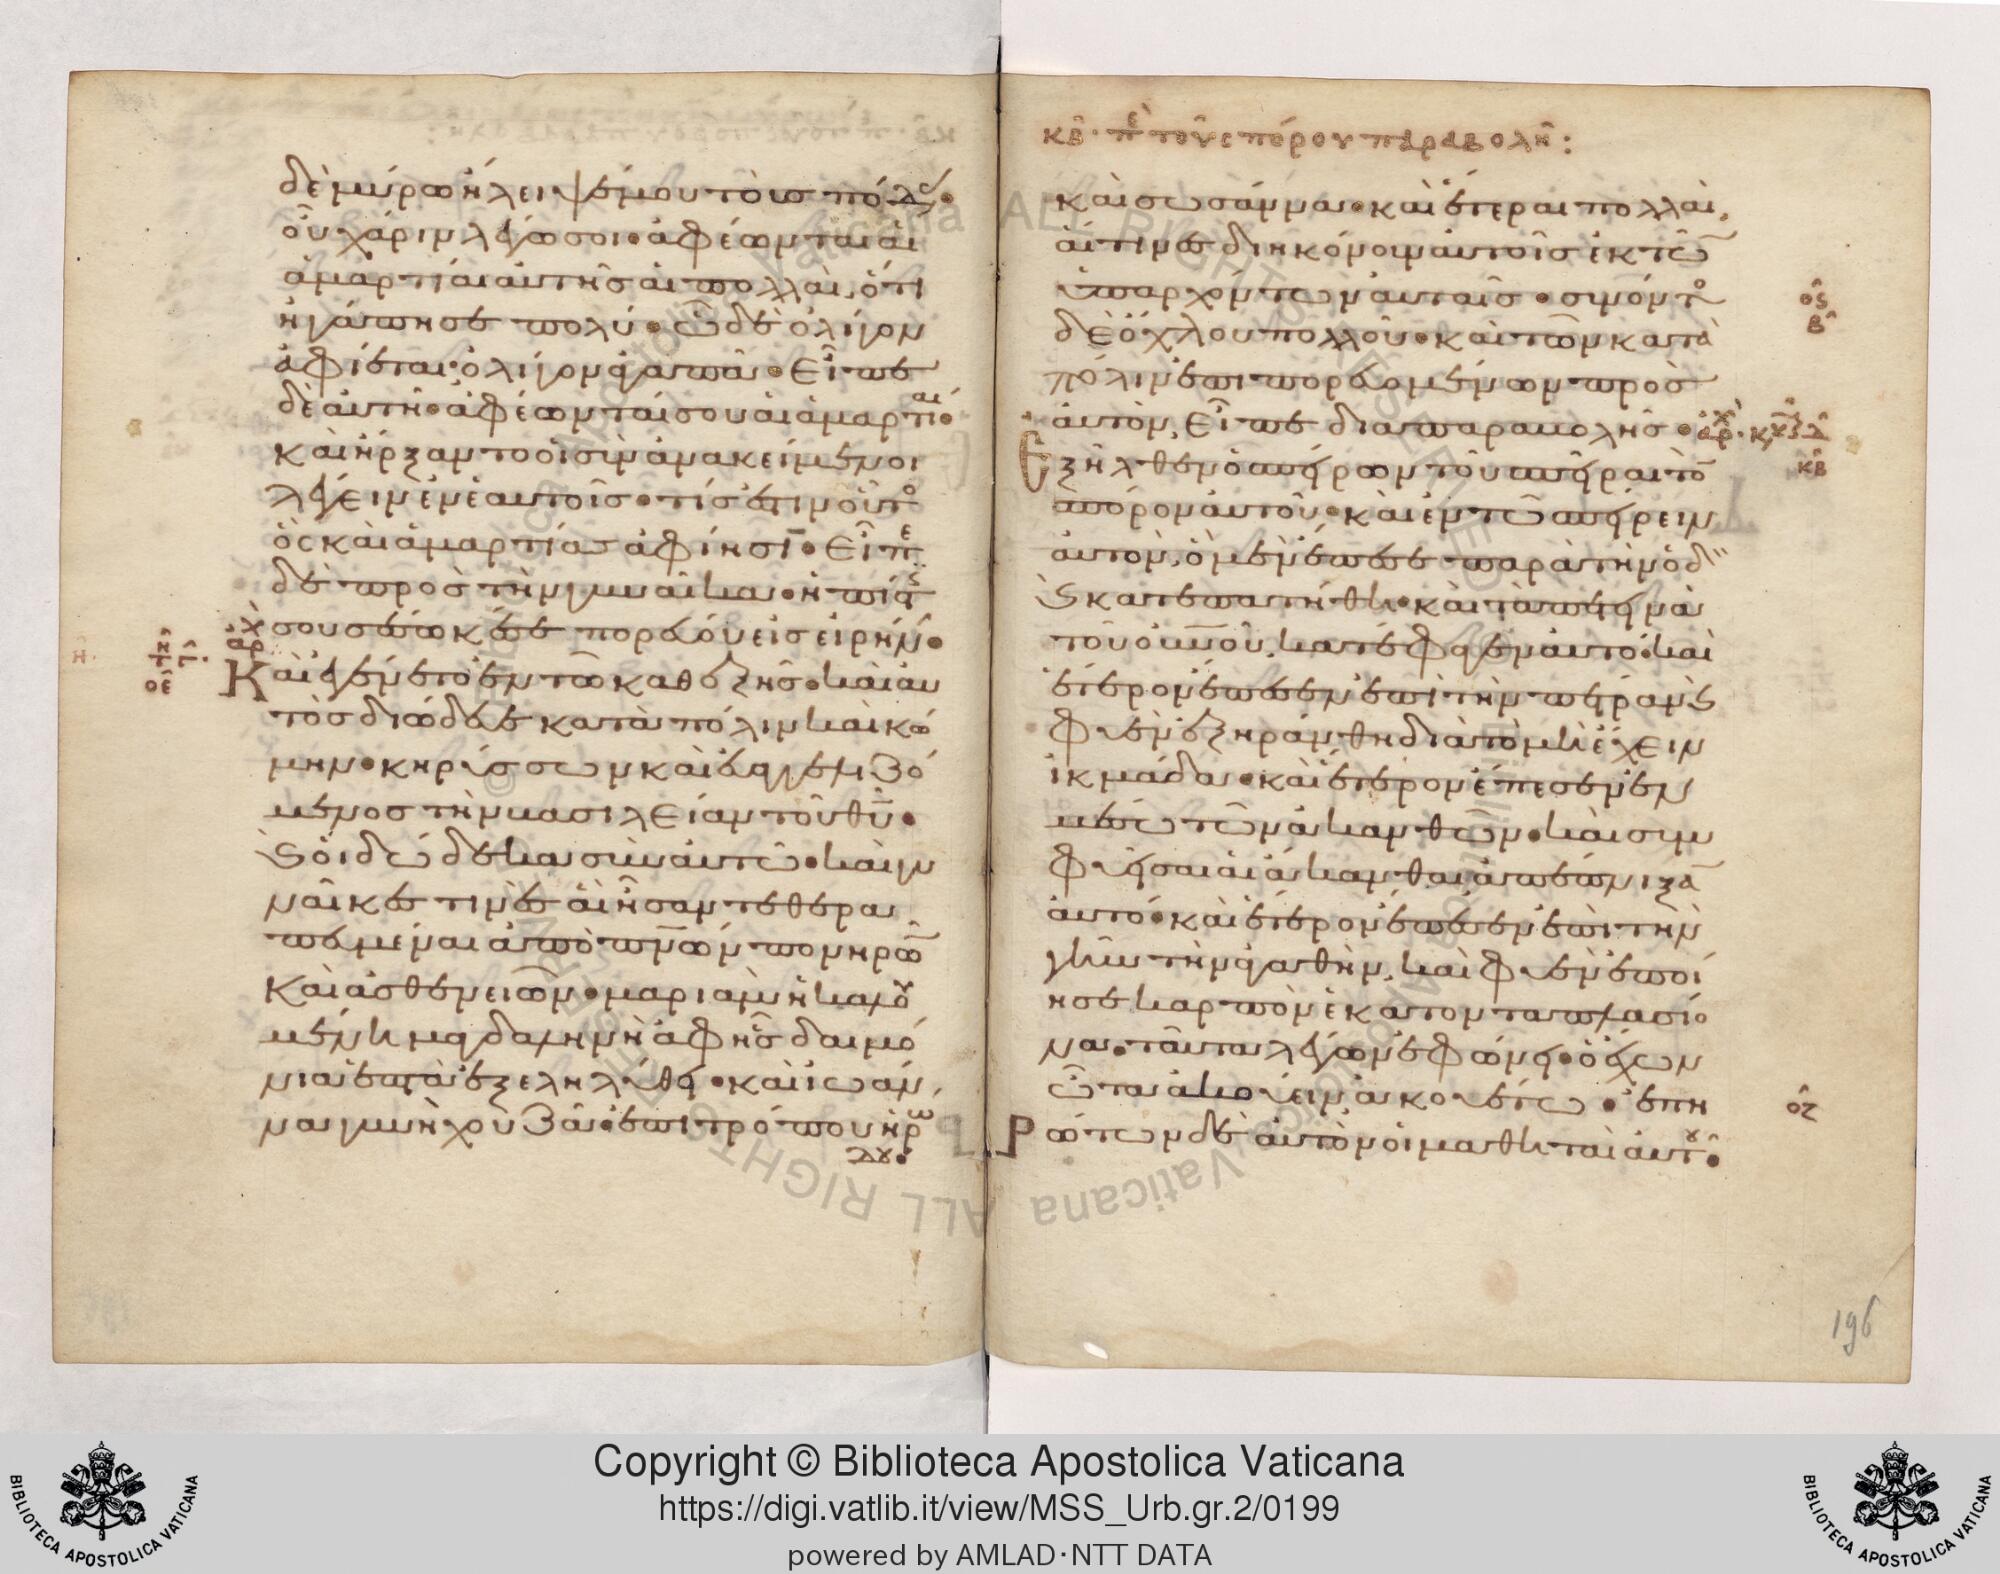 δὲ μύρω ἤλειψέ μου τοὺσ πόδασ·
οὗ χάριν λέγω σοι· ἀφέωνται αἱ
ἁμαρτίαι αὐτῆσ αἱ πολλαὶ, ὅτι
ἠγάπησε πολύ· ὧ δὲ ὀλίγον
ἀφίεται· ὀλίγον ἀγαπᾶ· Εἶπε
δὲ αὐτῆ· ἀφέωνταί σου αἱ ἁμαρτίαι·
καὶ ἤρξαντο οἱ συνανακείμενοι
λέγειν ἐν ἑαυτοῖσ· τίσ ἐστιν οὗτο
ὃς καὶ ἁμαρτίασ ἀφίησϊ· Εἶπε
δὲ πρὸσ τὴν γυναῖκα· ἡ πίστισ
σου σέσωκέ σε πορεύου εἰσ εἰρήνην·
Καὶ ἐγένετο ἐν τῶ καθεξῆσ· καὶ αὐ
τὸσ διώδευε κατὰ πόλιν καὶ κώ
μην· κηρύσσων καὶ εὐαγγελιζό
μενοσ τὴν βασιλείαν τοῦ θυ·
καὶ οἱ δώδεκα σὺν αὐτῶ· καὶ γυ
ναῖκέσ τινεσ αἳ ἦσαν τεθερα
πευμέναι ἀπὸ πνων πονηρῶ
καὶ ἀσθενειῶν· μαρία ἡ καλου
μένη μαγδαληνὴ ἀφ ἧσ δαιμό
νια ἑπτὰ ἐξεληλύθει· καὶ ἰωάν
να γυνὴ χουζᾶ· ἐπιτρόπου ἡρώ
δου·
κβ· πε τοῦ σπόρου παραβολή:
καὶ σωσάννα· καὶ ἕτεραι πολλαὶ,
αἵτινεσ διηκόνουν αὐτοῖσ ἐκ τῶ
ὑπαρχόντων αὐταῖσ· συνιόντο
δὲ ὄχλου πολλοῦ· καὶ τῶν κατὰ
πόλιν ἐπιπορευομένων πρὸσ
αὐτὸν, Εἶπε δια παραβολῆσ·
Ἐξῆλθεν ὁ σπείρων τοῦ σπεῖραι τὸ
σπόρον αὐτοῦ· καὶ ἐν τῶ σπείρειν
αὐτον, ὃ μὲν ἔπεσε παρὰ τὴν ὁδ
καὶ κατεπατήθη· καὶ τὰ πετεινὰ
τοῦ ουνου, κατέφαγεν αὐτό· καὶ
ἕτερον ἔπεσεν ἐπὶ τὴν πέτραν καὶ
φυὲν ἐξηράνθη διὰ τὸ μὴ ἔχειν
ἰκμάδα· καὶ ἕτερον ἔπεσεν ἐν
μέσω τῶν ἀκανθῶν· καὶ συμ
φυεῖσαι αἱ ἄκανθαι ἀπέπνιξα
αὐτό· καὶ ἕτερον ἔπεσεν ἐπὶ τὴν
γῆν τὴν ἀγαθὴν, καὶ φυὲν ἐποί
ησε καρπὸν ἑκατονταπλασίο
να· ταῦτα λέγων ἐφώνει· ὁ ἔχων
ὦτα ἀκούειν ἀκουέτω· ἐπη
Ρώτων δὲ αὐτὸν οἱ μαθηταὶ αὐτοῦ·
196
Copyright © Biblioteca Apostolica Vaticana
https://digi.vatlib.it/view/MSS_Urb.gr.2/0199
powered by AMLAD·NTT DATA
BIBLIOTECA APOSTOLICA VATICANA
BIBLIOTECA APOSTOLICA VATICANA